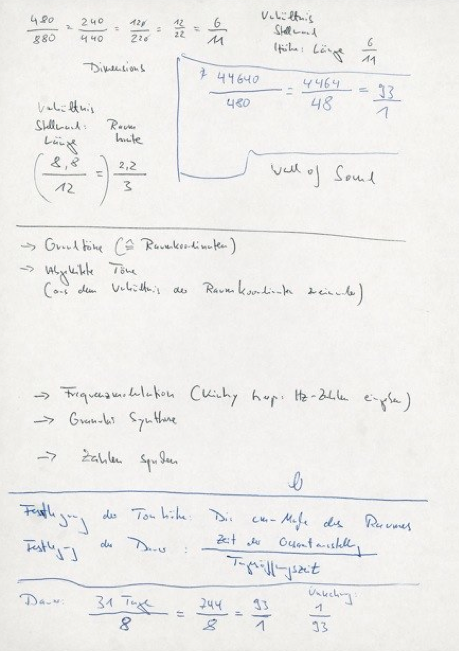 480/880 = 240/440 = 120/220 = 12/22 = 6/11
Verhältnis
Stellwand
Höhe: Länge 6/11
Dimensions
44640/480 = 4464/48 = 93/1
Verhältnis
Stellwand: Raum
Länge breite
(8,8/12 =) 2,2/3
Wall of Sound
→ Grundtöne (≙ Raumkoordinaten)
→ Abgeleitete Töne
(aus dem Verhältnis der Raumkoordinaten zueinander)
→ Frequenzmodulation ( Hz-Zahlen eingeben)
→ Granular Synthese
→ Zahlen
Festlegung der Tonhöhe: Die cm-Maße des Raumes
Festlegung der Dauer: Zeit der Gesamtausstellung/Tagesöffnungszeit
Dauer: 31 Tage/8 = 744/8 = 93/1
1/93